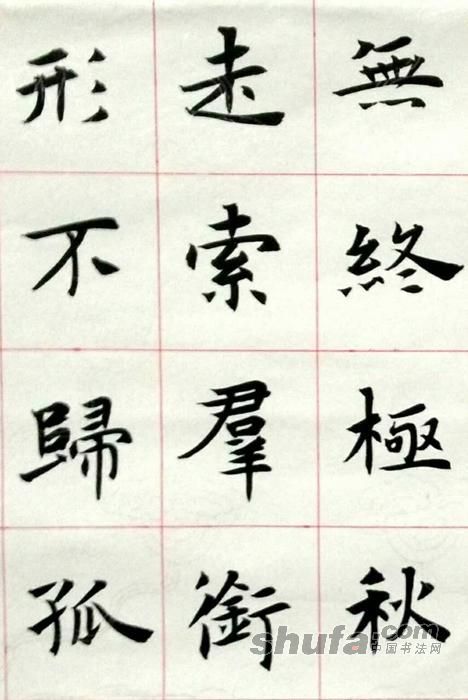 無終極秋
走索羣銜
形不歸孤
shufa.com
中国书法网